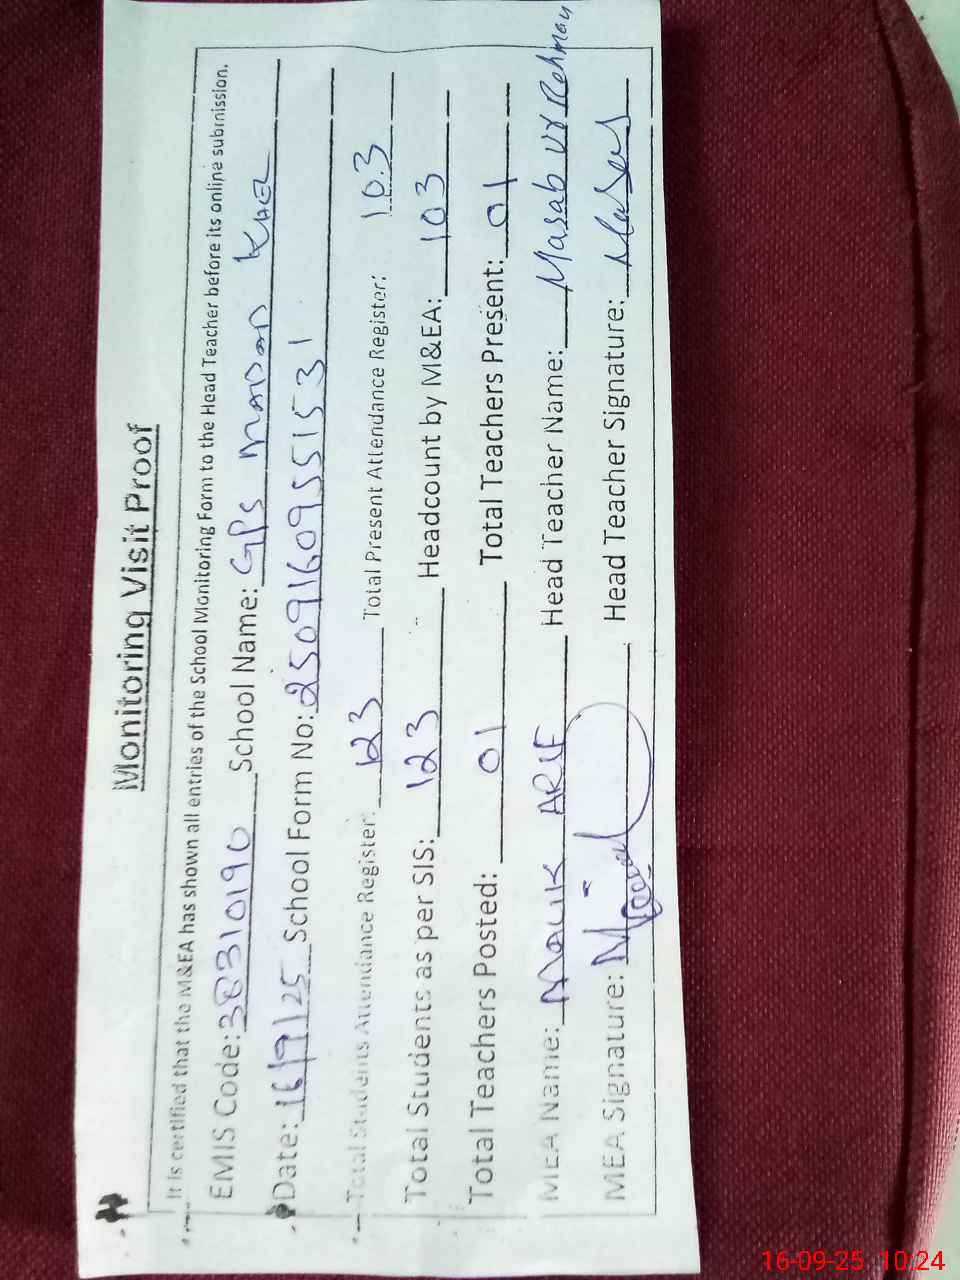 Monitoring Visit Proof
It is certified that the M&EA has shown all entries of the School Monitoring Form to the Head Teacher before its online submission.
EMIS Code: 38310190 School Name: GPS MANDAN KHEL
Date: 16/9/25 School Form No: 250916095515 31
Total Students Attendance Register: 123 Total Present Attendance Register: 103
Total Students as per SIS: 123 Headcount by M&EA: 103
Total Teachers Posted: 01 Total Teachers Present: 01
MEA Name: MALIK ARIF Head Teacher Name: Masab ur Rehman
MEA Signature: Head Teacher Signature:
16-09-25 10:24